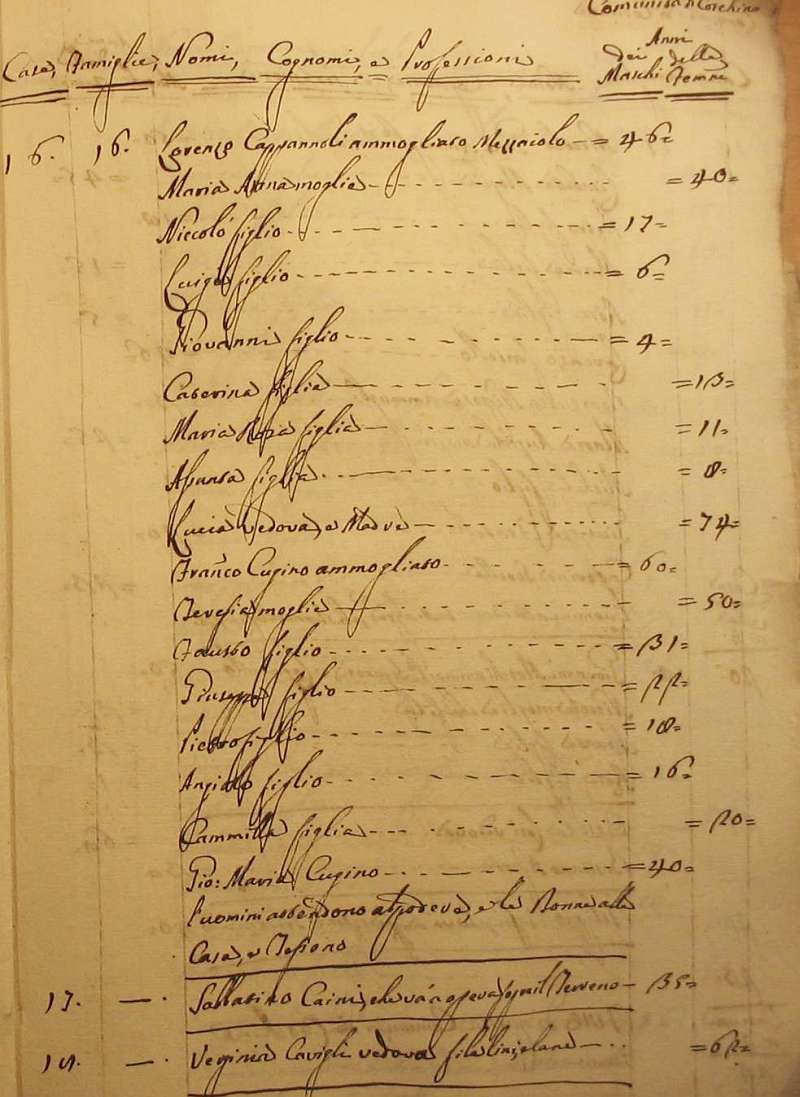 Comunità di
Case, Famiglie, Nomi, Cognomi, e Professioni
Anni
dei Maschi
delle Femne
16. 16. Lorenzo Cappannoli ammogliato Mezzaiolo = 46=
Maria Anna moglie = 40=
Niccolò figlio = 17=
Luigi figlio = 6=
Giovanni figlio = 4=
Caterina figlia = 13=
Maria Rosa figlia = 11=
Assunta figlia = 8=
Lucia Vedova, e Madre = 74=
Franco Cugino ammogliato = 60=
Teresia moglie = 50=
Fausto figlio = 31=
Giuseppe figlio = 22=
Pietro figlio = 18=
Angiolo figlio = 16=
Cammilla figlia = 20=
Gio: Maria Cugino = 40=
l'uomini attendono al podere, e le Donne alle
Case, e Tessono
17. — Sallatino Caini, che và a opera il Terreno — 35=
— Verginia Cavigli vedova fila lini, e lane — = 62=